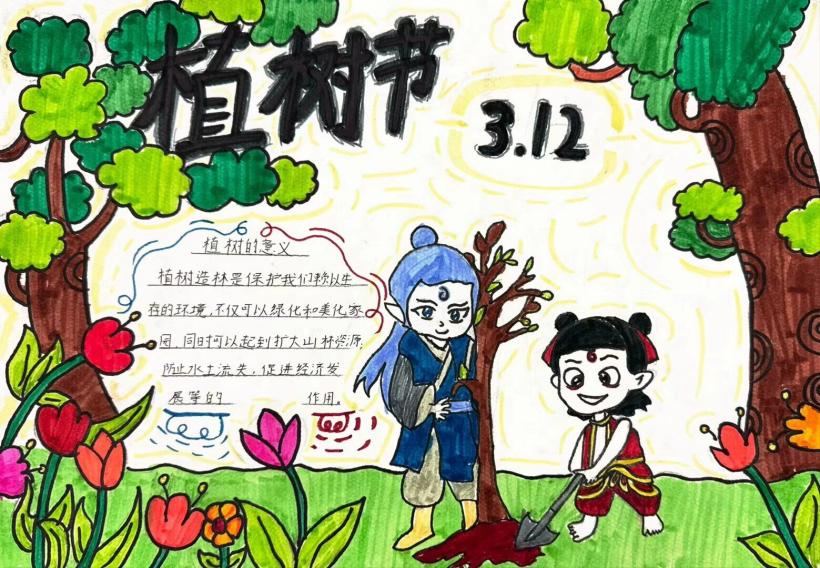 植树节
3.12
植树的意义
植树造林是保护我们赖以生
存的环境,不仅可以绿化和美化家
园,同时可以起到扩大山林资源,
防止水土流失,促进经济发
展等的 作用。